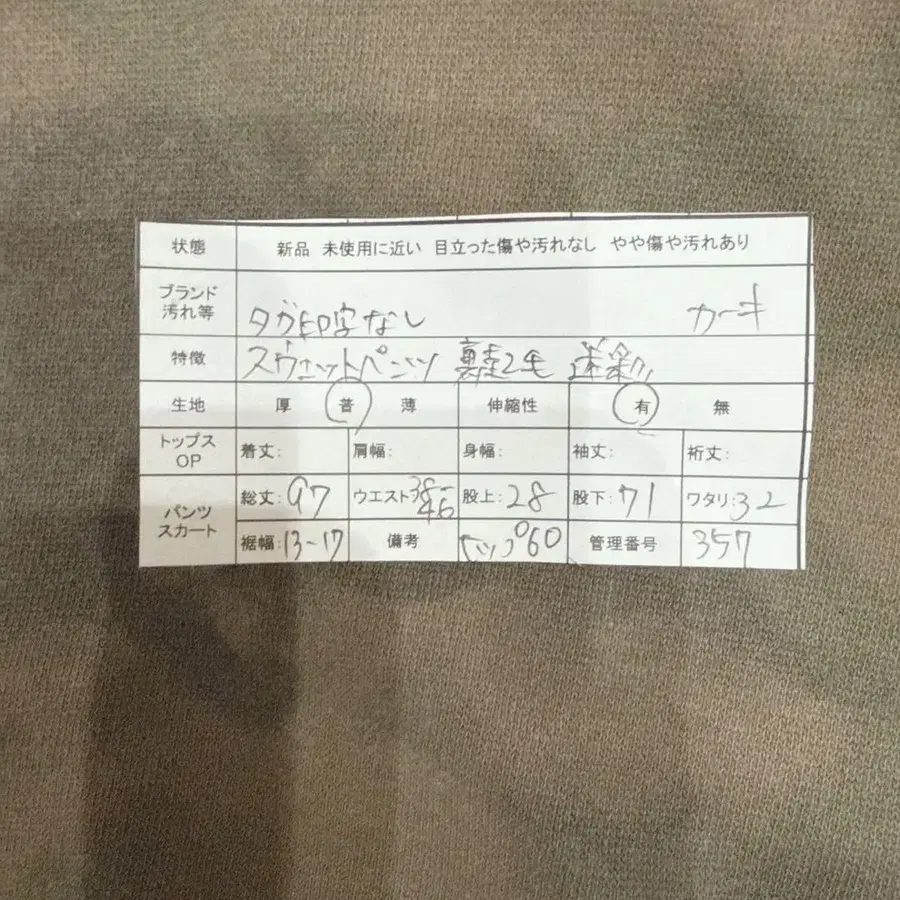 状態 新品 未使用に近い 目立った傷や汚れなし やや傷や汚れあり
ブランド
汚れ等 タグ印字なし カーキ
特徴 スウェットパンツ 裏起毛 迷彩
生地 厚 普 薄 伸縮性 有 無
トップス
OP 着丈: 肩幅: 身幅: 袖丈: 裄丈:
パンツ
スカート 総丈: 97 ウエスト: 38-46 股上: 28 股下: 71 ワタリ: 32
裾幅: 13-17 備考 ヒップ60 管理番号 357